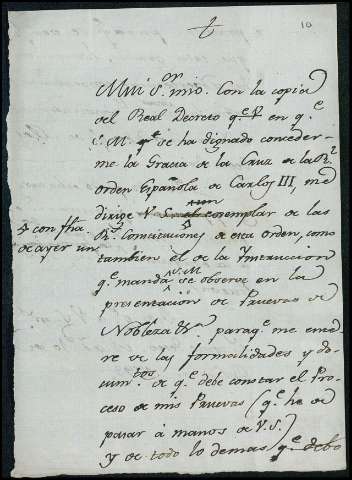 10
Mui S.or mio. Con la copia
del Real Decreto q.e en q.e
S. M. se ha dignado conceder
me la Gracia de la Cruz de la R.l
orden Española de Carlos III, me
dirige V.S. exemplar de las
R.s Constituciones de esta Orden, como
con fha.
de ayer un
tambien el de la Ynstruccion
q.e manda S.M. se observe en la
presentación de Pruevas de
Nobleza &.a paraq.e me ente
re de las formalidades y do
cum.tos de q.e debe constar el Pro
ceso de mis Pruevas (q.e he de
pasar á manos de V.S.)
y de todo lo demas q.e debo